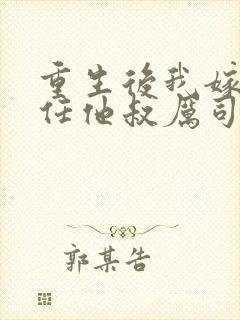 重生後我嫁
任他叔厲司
郭某告